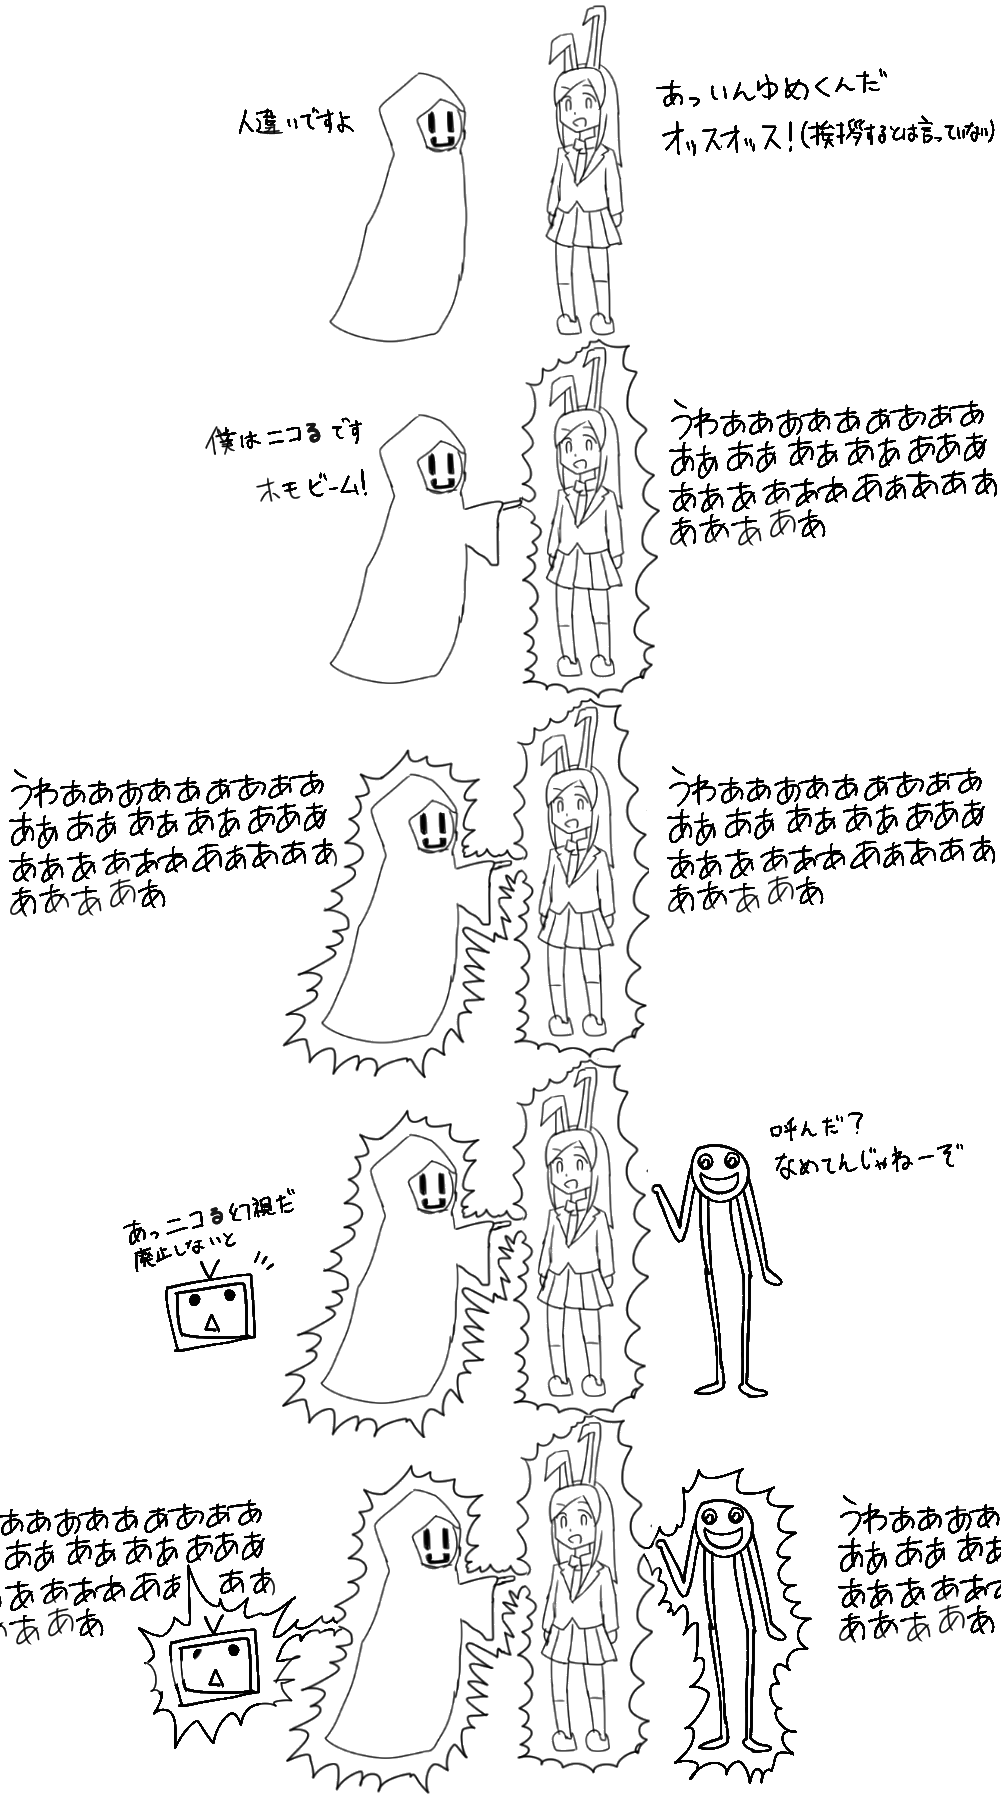 あっいんゆめくんだ
オッスオッス！(挨拶するとは言っていない)
人違いですよ
うわあああああああああ
ああああああああああ
あああああああああああ
あああああ
僕はニコるです
ホモビーム！
うわあああああああああ
ああああああああああ
あああああああああああ
あああああ
うわあああああああああ
ああああああああああ
あああああああああああ
あああああ
呼んだ？
なめてんじゃねーぞ
あっニコる幻視だ
廃止しないと
うわああああ
ああああああ
ああああああ
あああああ
あああああああああ
ああああああああ
ああああああああ
ああああ